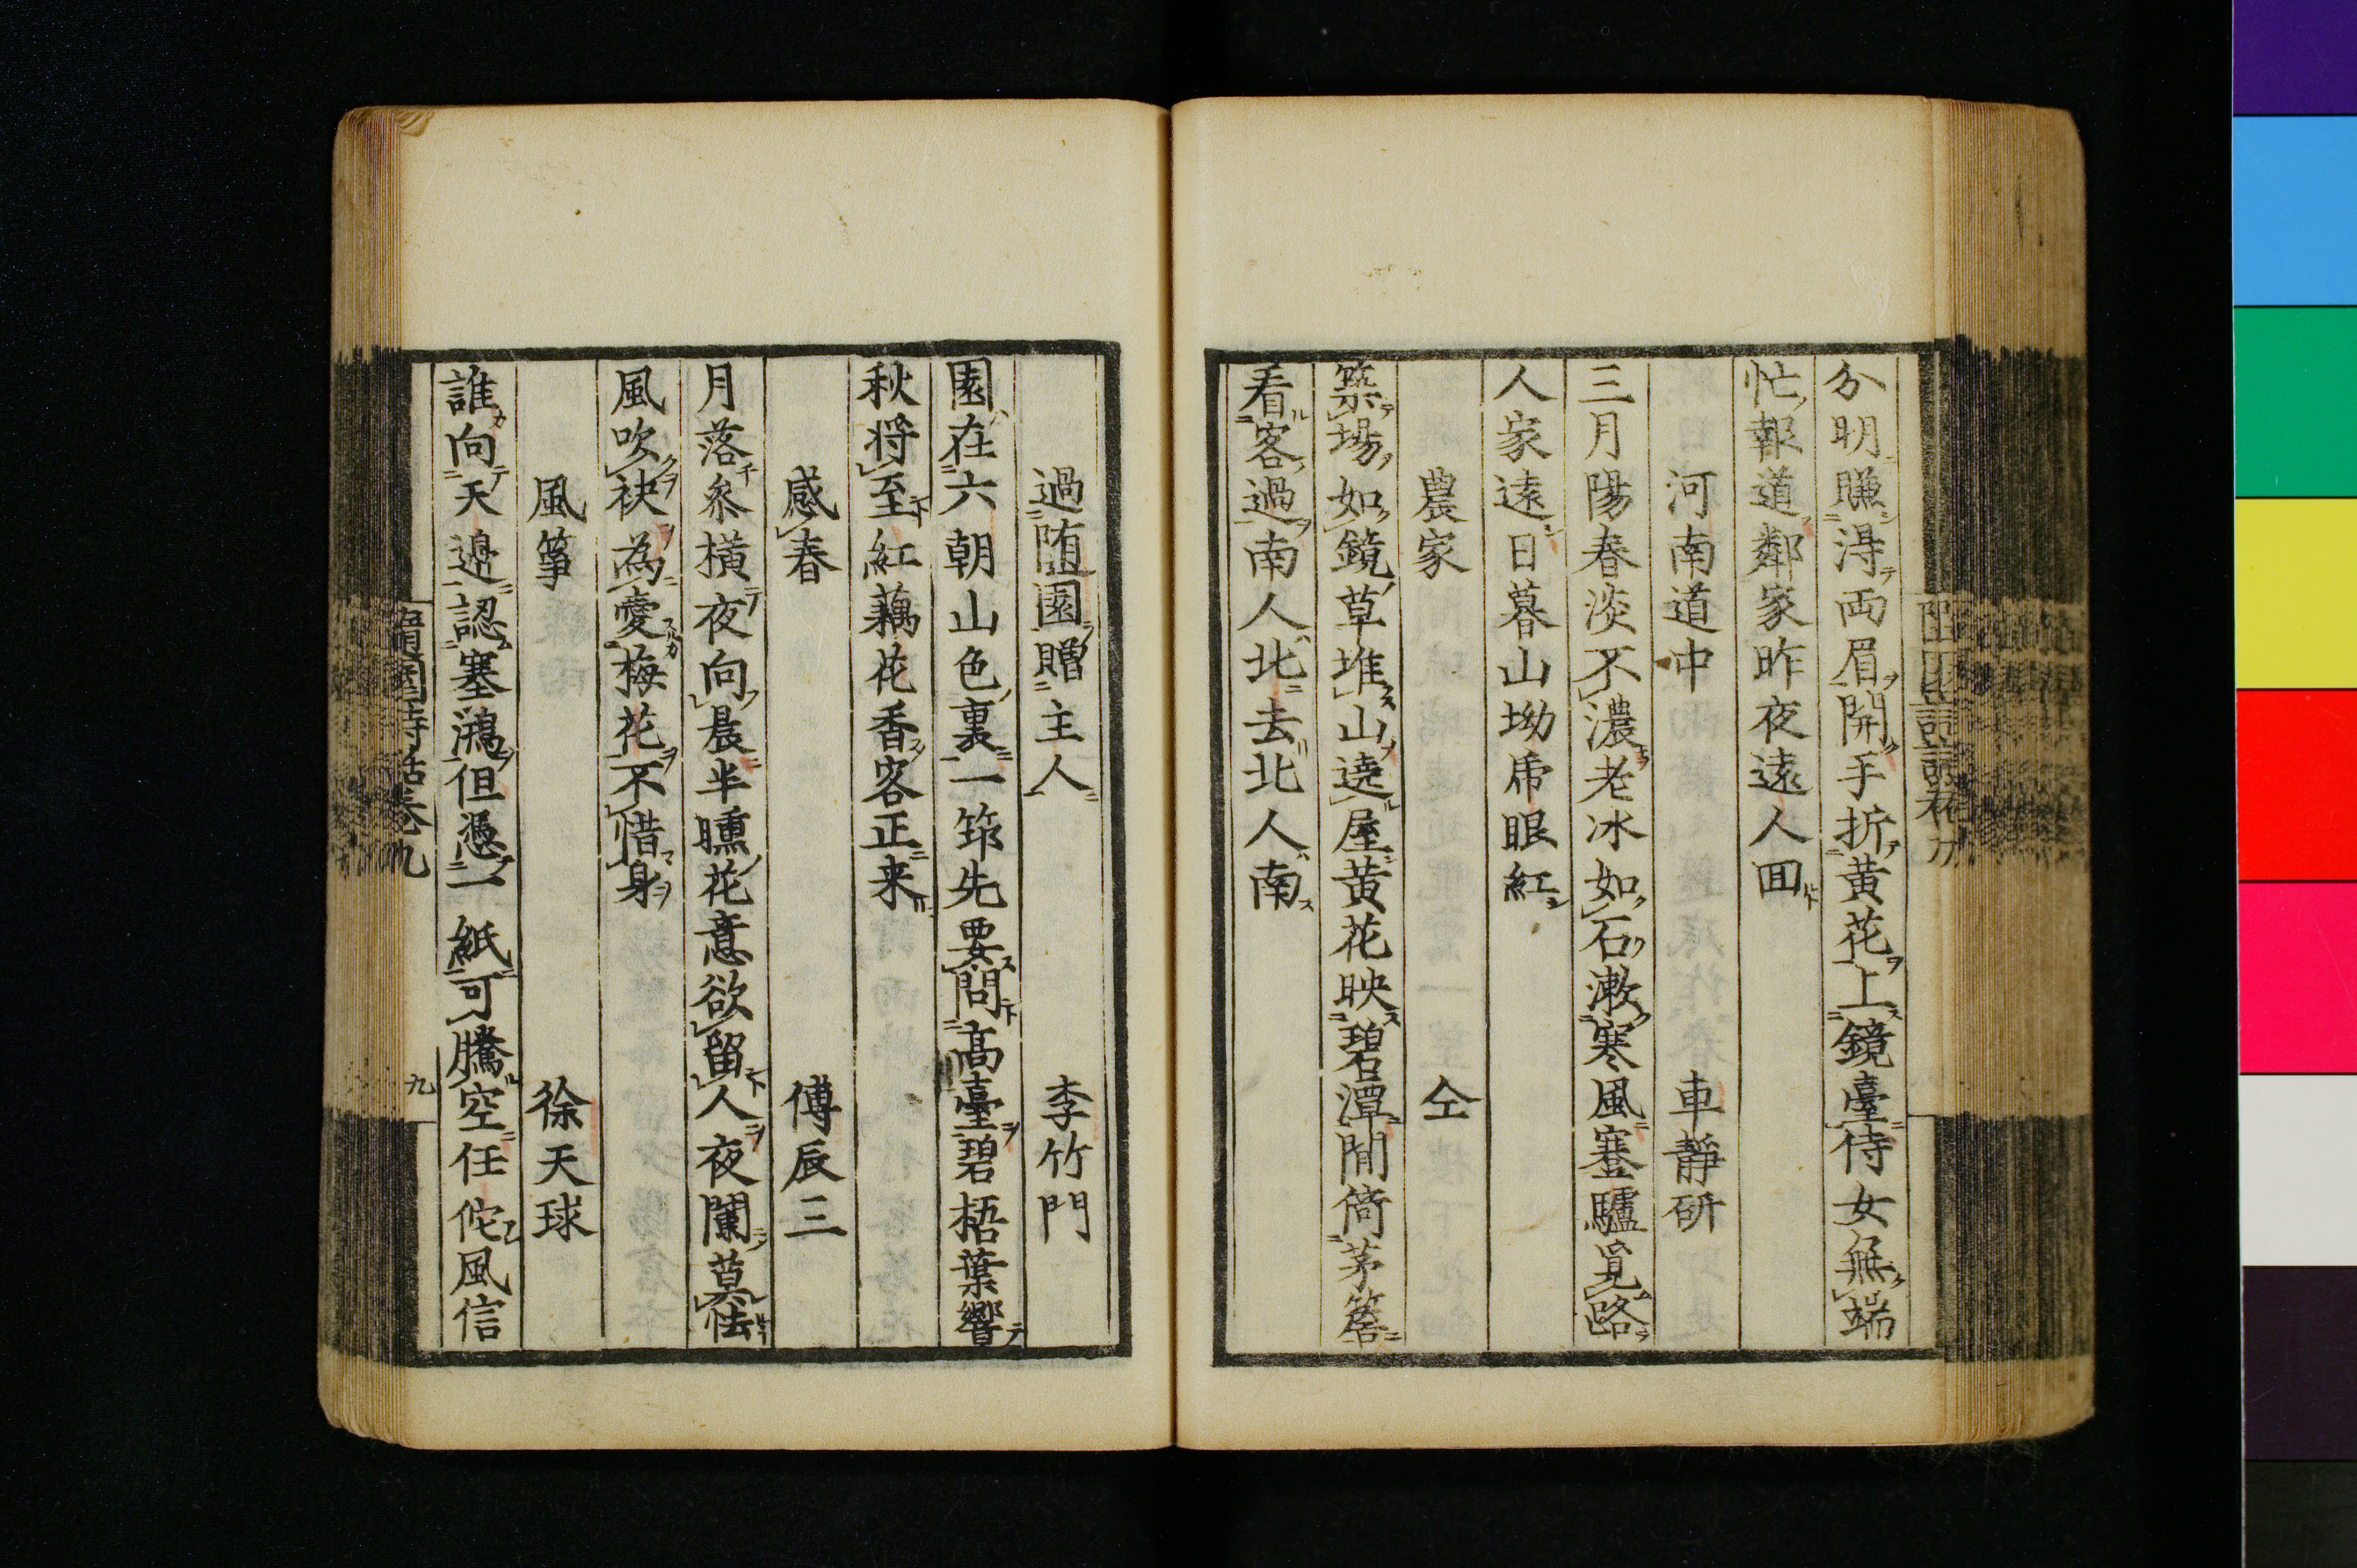 分明賺得両眉開手折黄花上鏡臺侍女無端
忙報道鄰家昨夜遠人囬
河南道中 車靜研
三月陽春淡不濃老冰如石漱寒風蹇驢覓路
人家遠日暮山坳帘眼紅
農家 仝
築場如鏡草堆山遶屋黄花映碧潭閒倚茅簷
看客過南人北去北人南
過随園贈主人 李竹門
園在六朝山色裏一筇先要問高臺碧梧葉響
秋将至紅藕花香客正来
感春 傅辰三
月落参横夜向晨半曛花意欲留人夜闌莫怯
風吹袂為愛梅花不惜身
風筝 徐天球
誰向天邉認塞鴻但憑一紙可騰空任佗風信
隨園詩話卷九
九